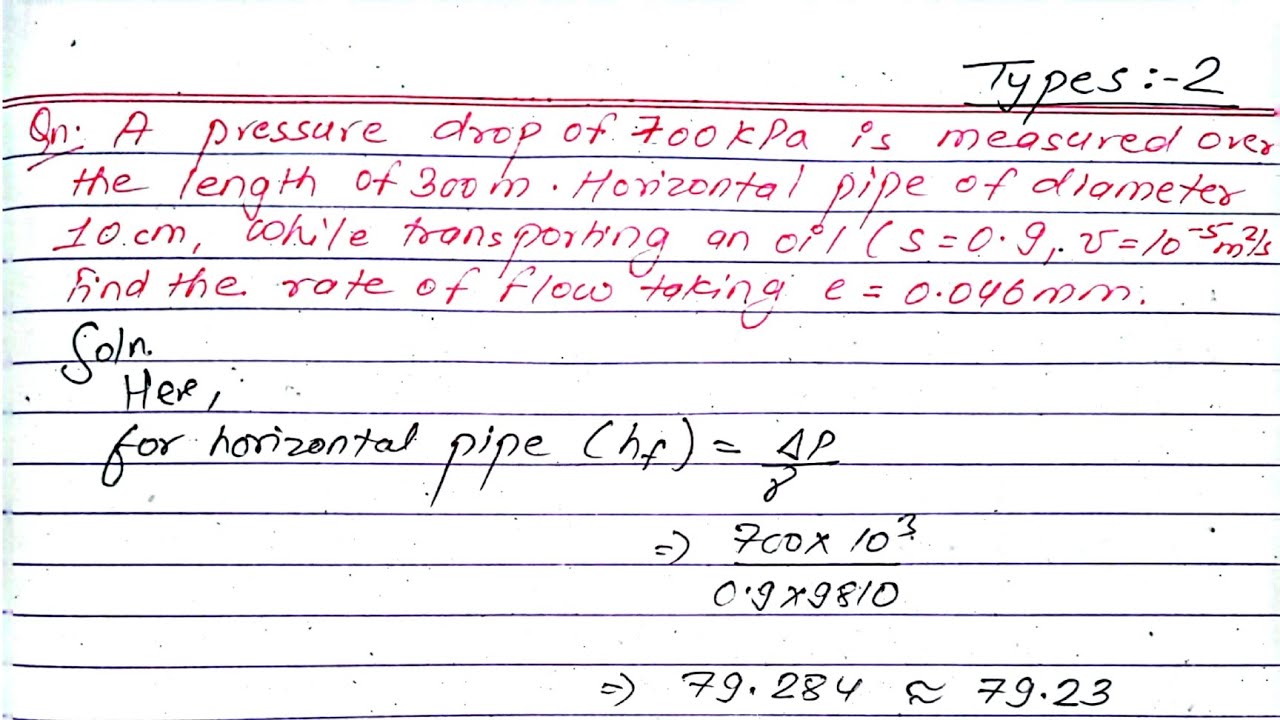 Types:-2
Qn. A pressure drop of 700kPa is measured over
the length of 300m. Horizontal pipe of diameter
10.cm, while transporting an oil (s=0.9, ν=10⁻⁵m²/s
find the rate of flow taking e = 0.046mm.
Soln.
Here,
for horizontal pipe (hf) = ΔP/γ
=> 700×10³/0.9×9810
=> 79.284 ≈ 79.23